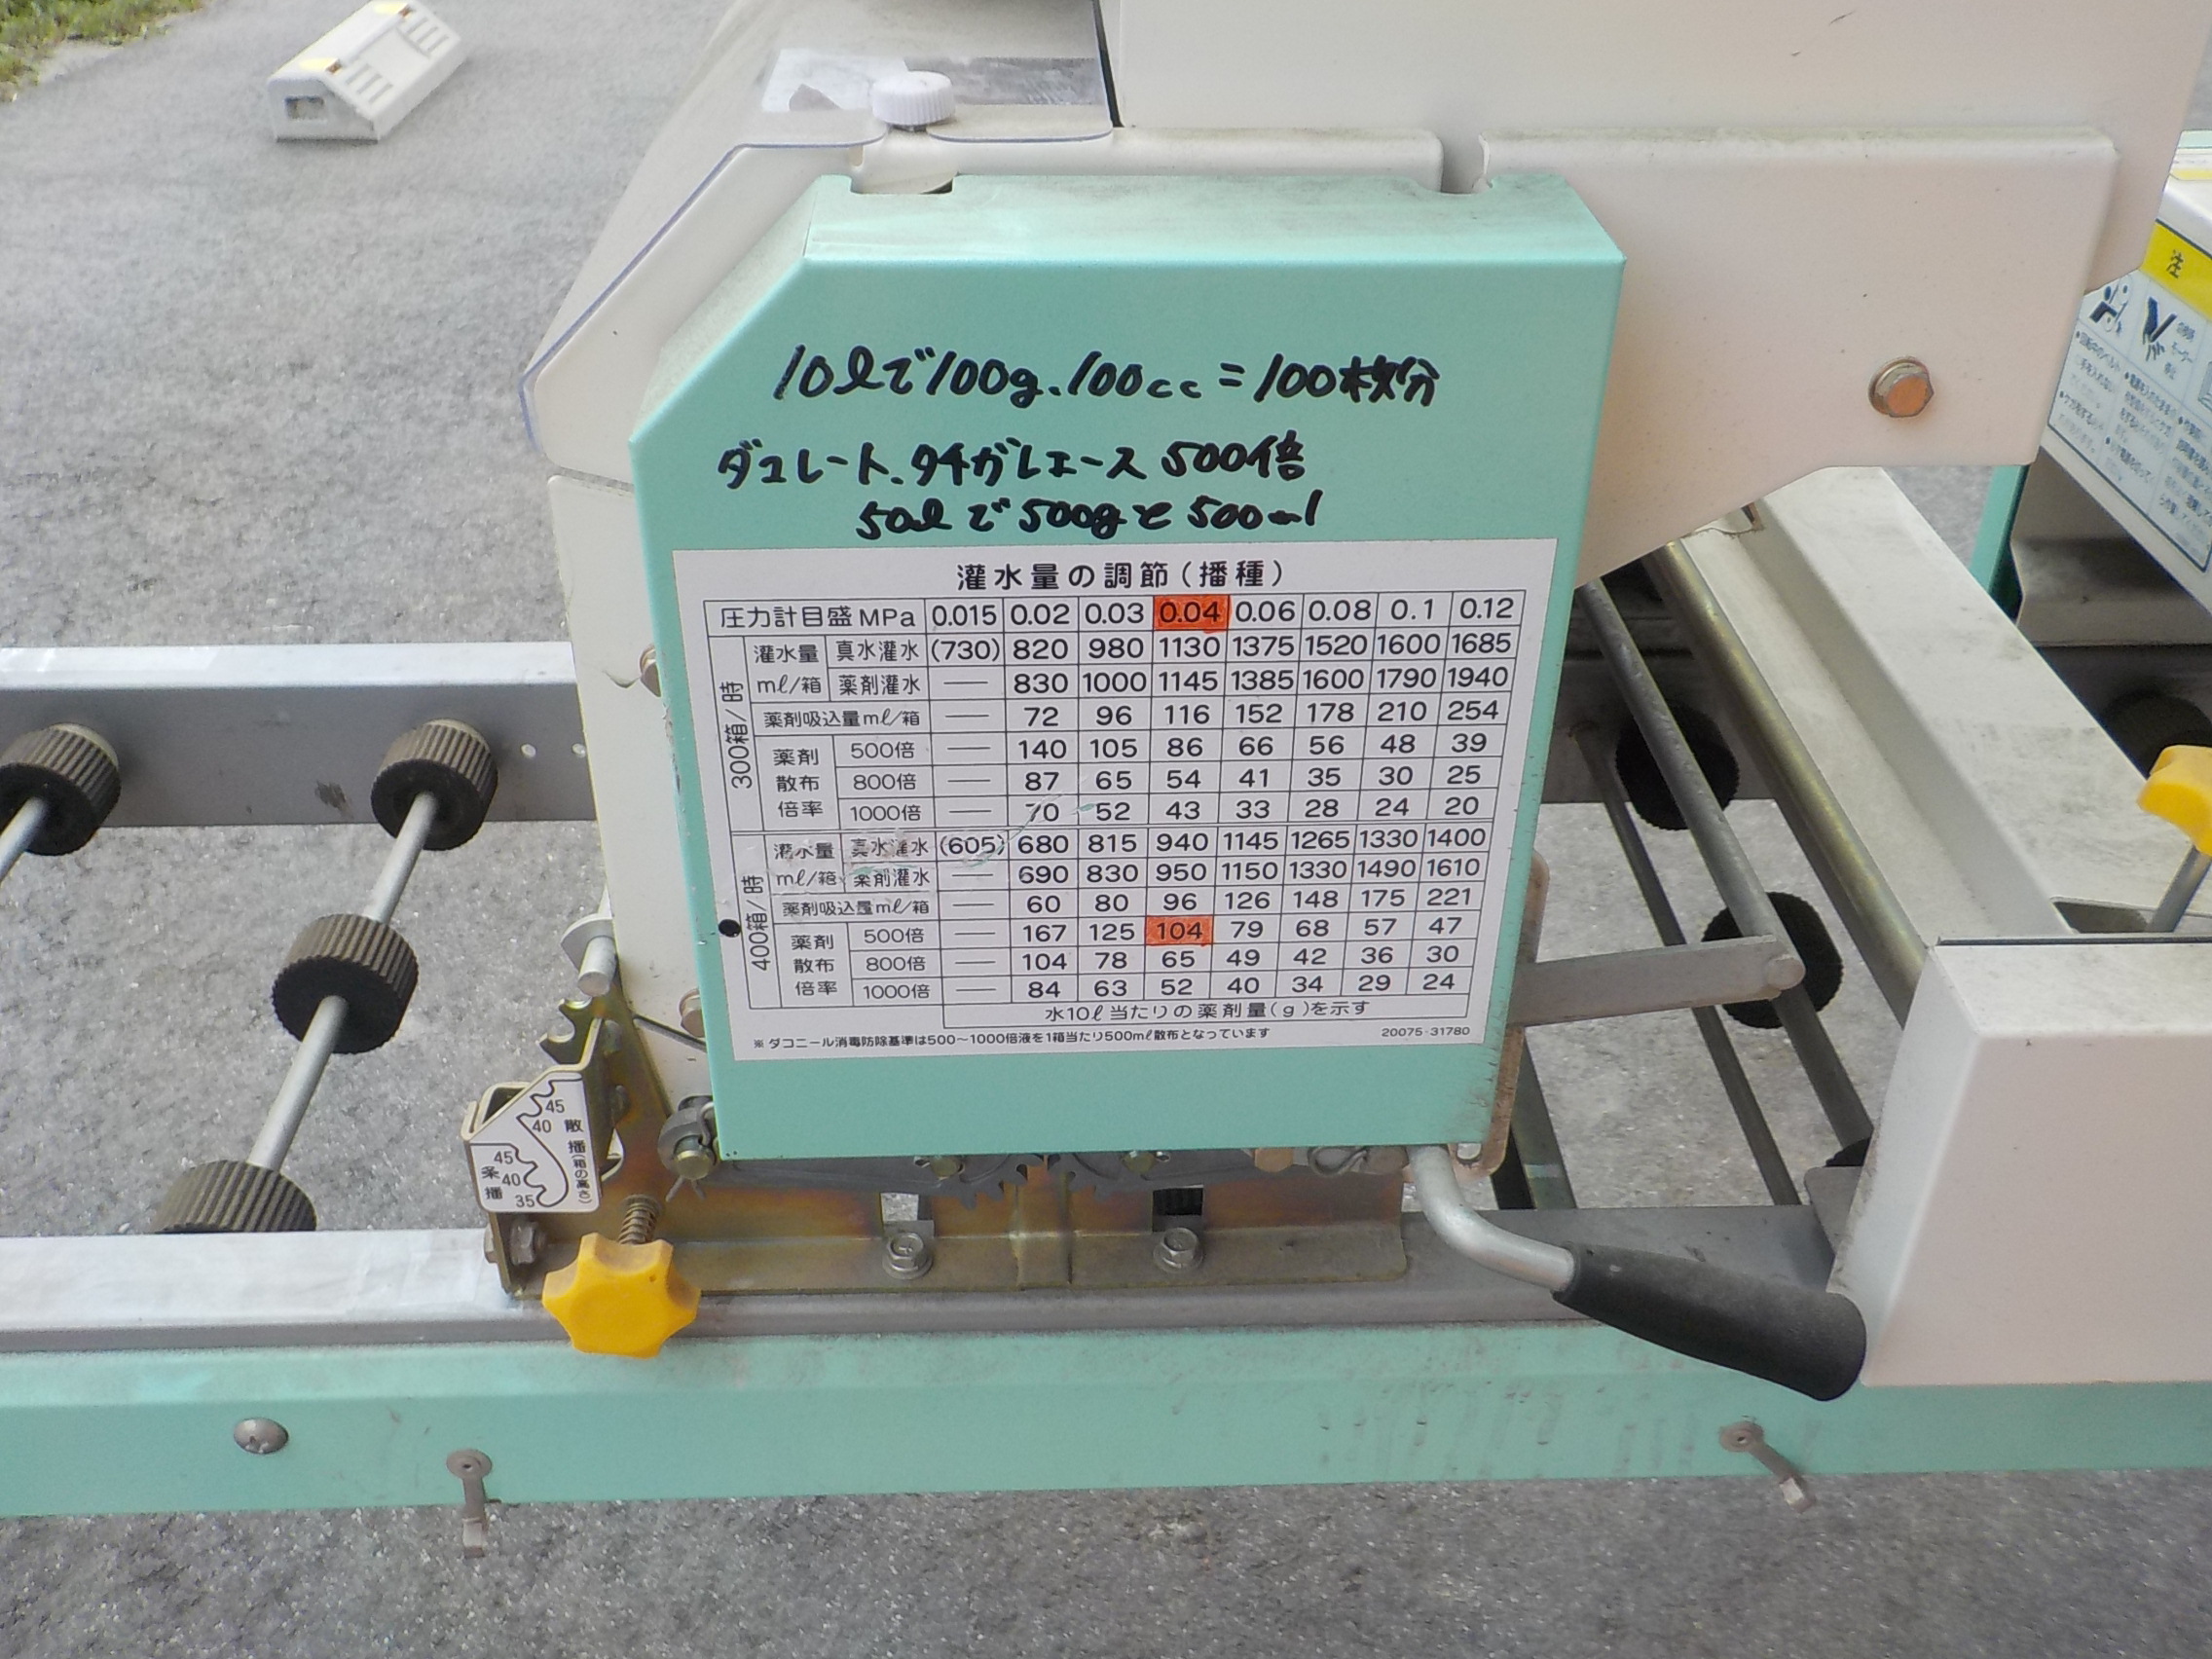 10ℓで100g、100cc=100枚分
ダュレート、タチガレエース 500倍
50ℓで500gと500ml
灌水量の調節(播種)
圧力計目盛MPa 0.015 0.02 0.03 0.04 0.06 0.08 0.1 0.12
300箱/時
灌水量 真水灌水 (730) 820 980 1130 1375 1520 1600 1685
mℓ/箱 薬剤灌水 — 830 1000 1145 1385 1600 1790 1940
薬剤吸込量mℓ/箱 — 72 96 116 152 178 210 254
薬剤 500倍 — 140 105 86 66 56 48 39
散布 800倍 — 87 65 54 41 35 30 25
倍率 1000倍 — 70 52 43 33 28 24 20
400箱/時
灌水量 真水灌水 (605) 680 815 940 1145 1265 1330 1400
mℓ/箱 薬剤灌水 — 690 830 950 1150 1330 1490 1610
薬剤吸込量mℓ/箱 — 60 80 96 126 148 175 221
薬剤 500倍 — 167 125 104 79 68 57 47
散布 800倍 — 104 78 65 49 42 36 30
倍率 1000倍 — 84 63 52 40 34 29 24
水10ℓ当たりの薬剤量(g)を示す
※ダコニール消毒防除基準は500〜1000倍液を1箱当たり500mℓ散布となっています
20075-31780
45
40 散播(箱の高さ)
45
条播 40
35
注